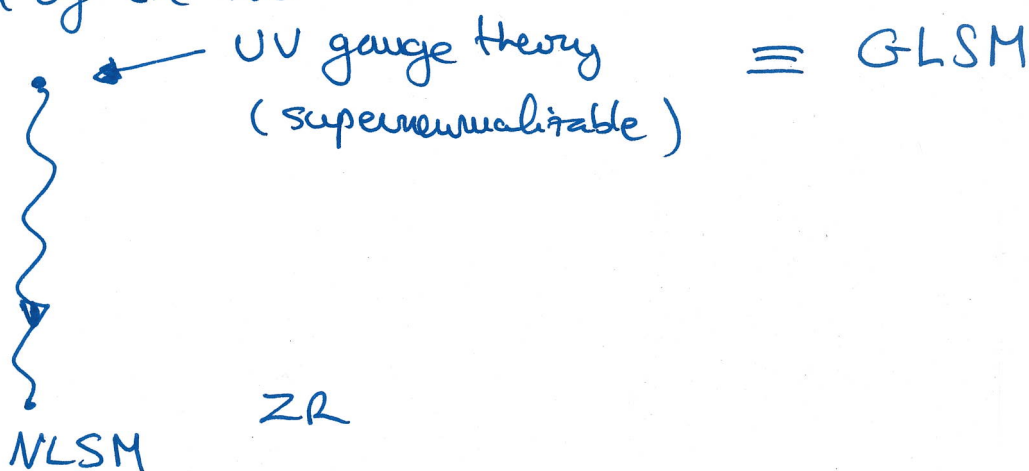 UV gauge theory ≡ GLSM
(superrenormalizable)
IR
NLSM